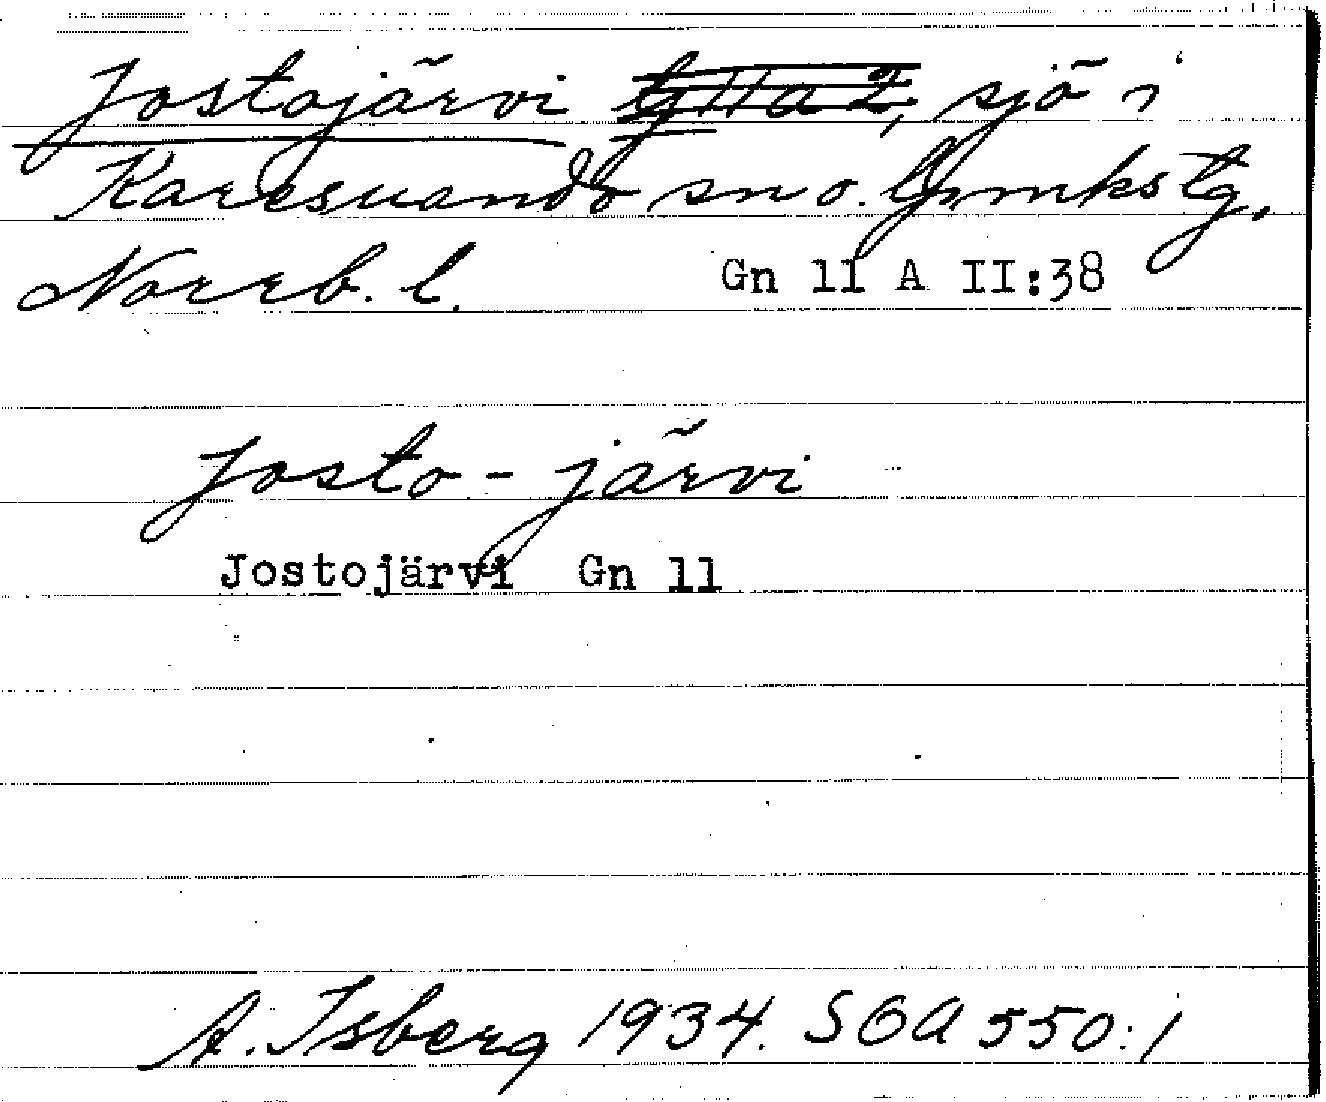 Jostojärvi, sjö i
Karesuando sn o. lpmkstg,
Norrb. l. Gn 11 A II:38
Josto - järvi
Jostojärvi Gn 11
A. Isberg 1934. SOA 550:1